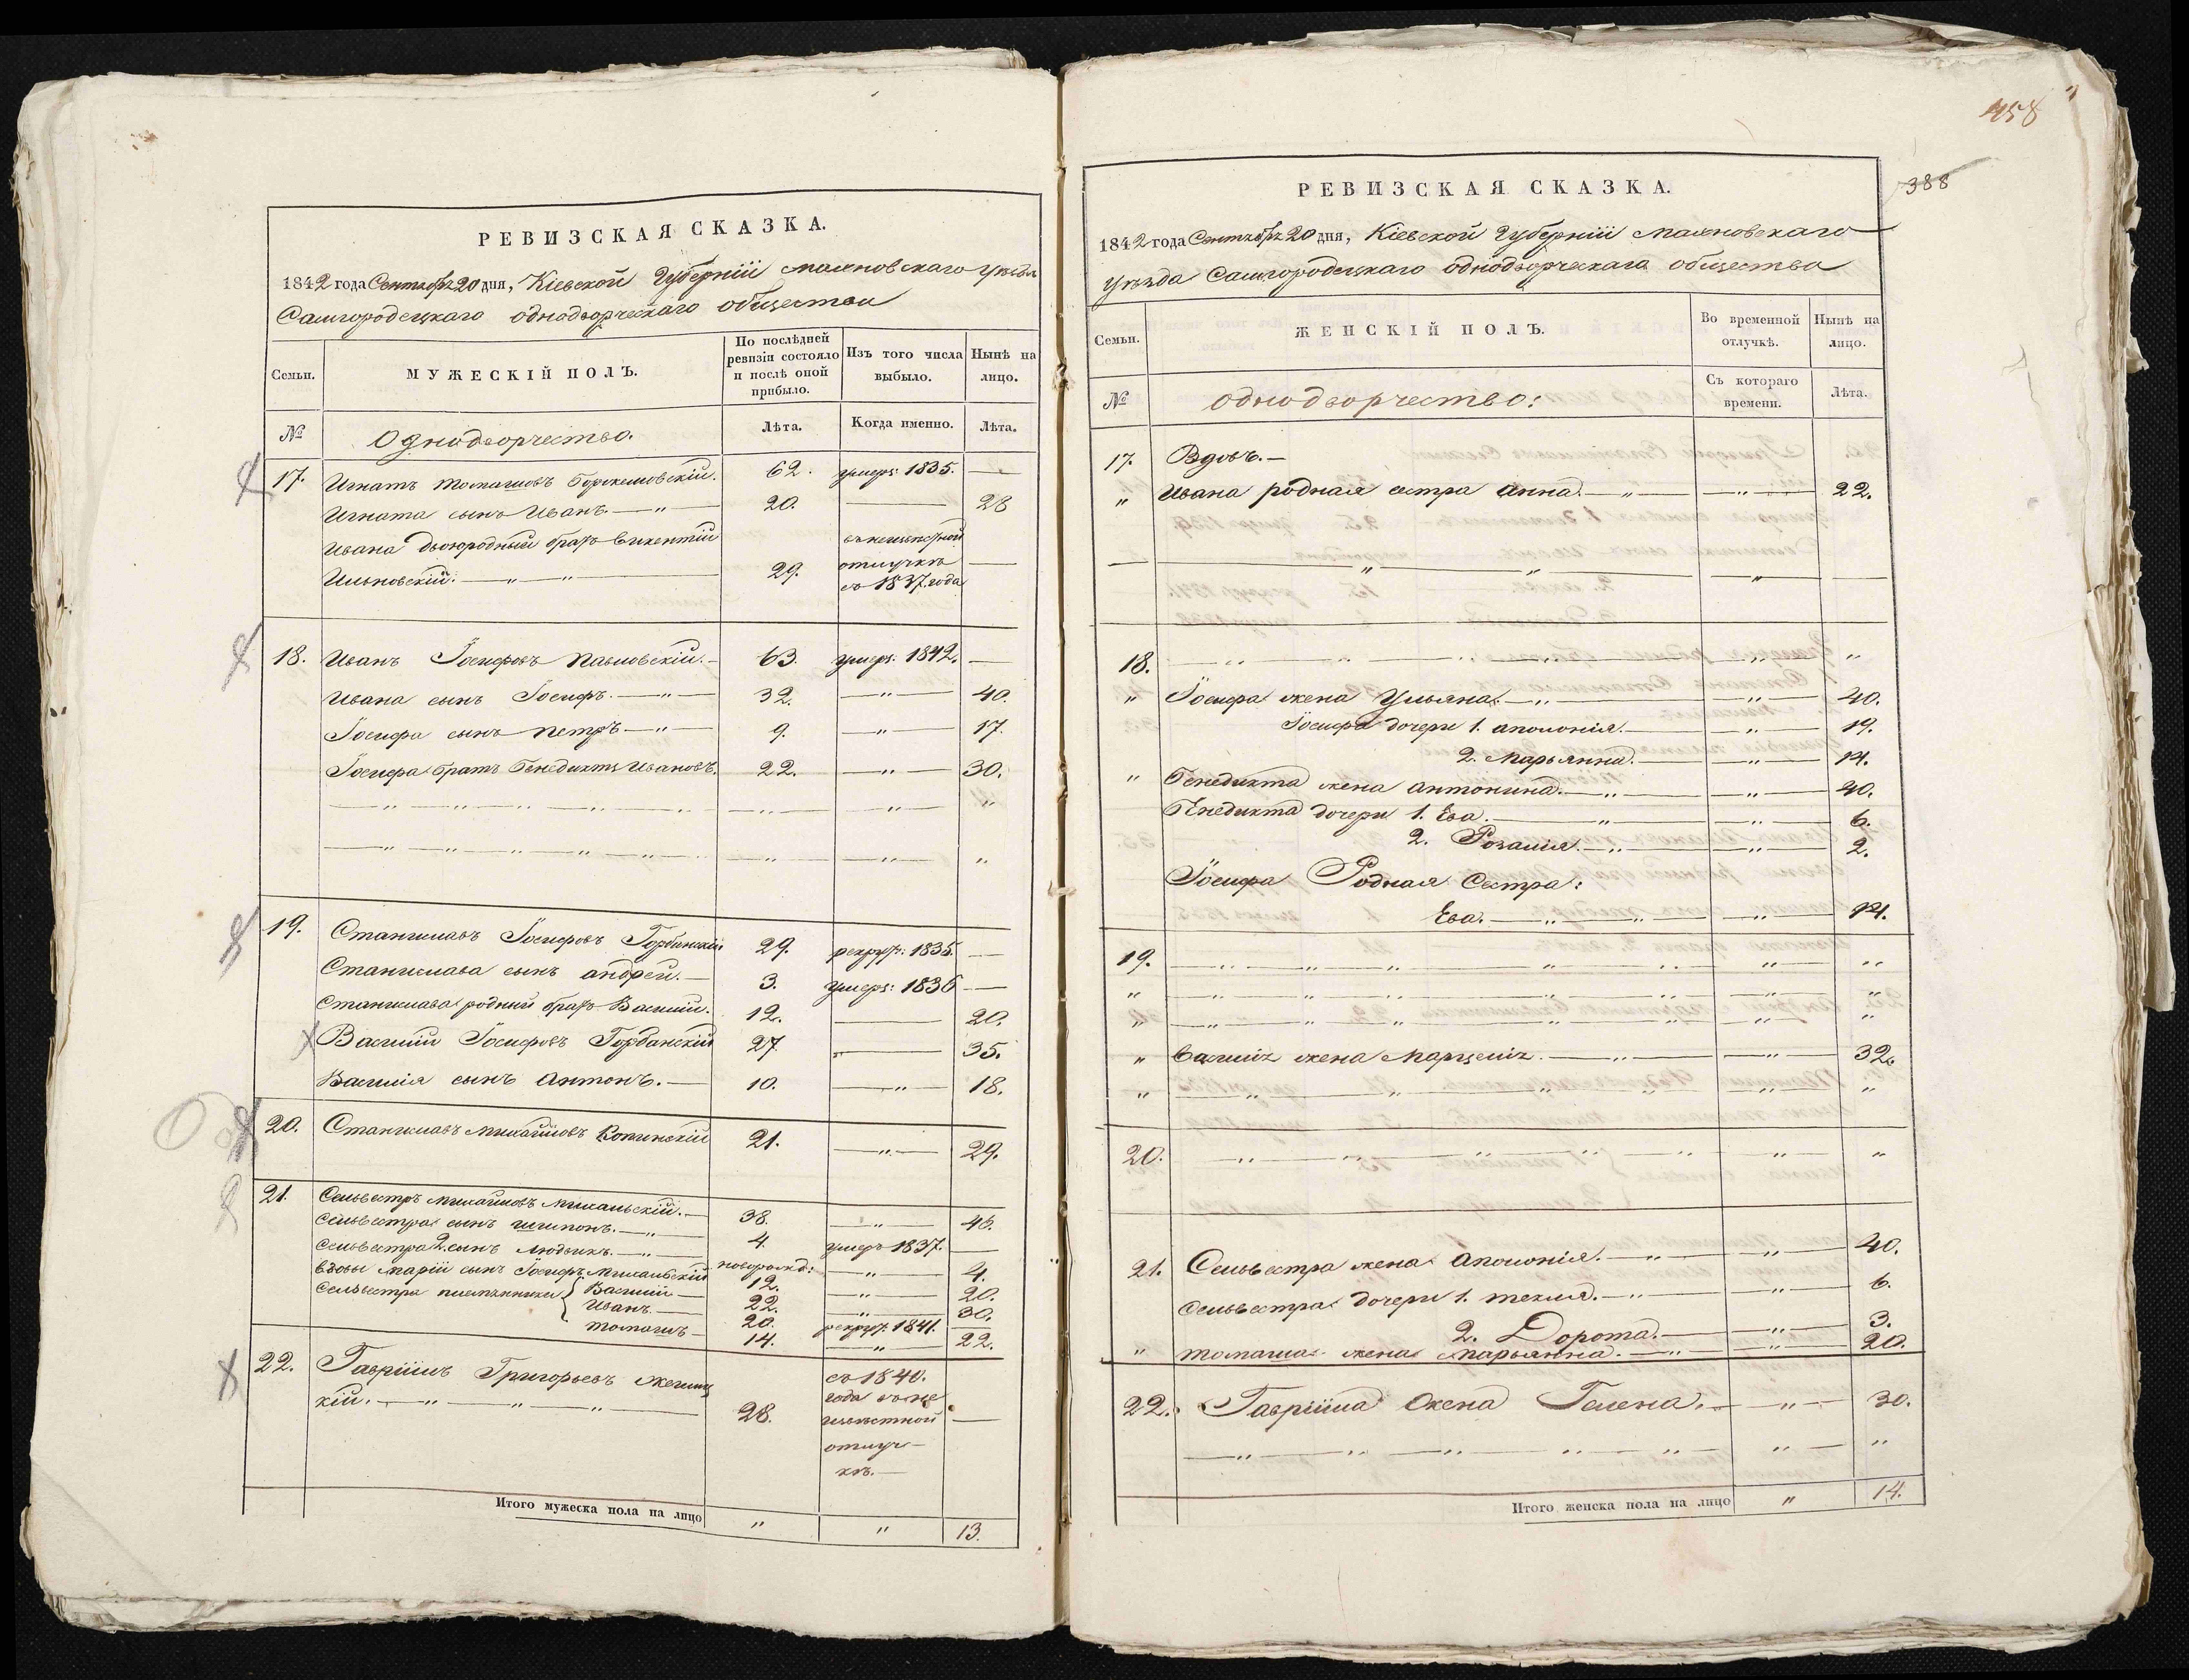 РЕВИЗСКАЯ СКАЗКА.
1842 года Сентября 20 дня, Кіевской Губерніи Махновскаго Уѣзда
Самгородецкаго однодворческаго общества
Семьи.
МУЖЕСКІЙ ПОЛЪ.
По послѣдней ревизіи состояло и послѣ оной прибыло.
Изъ того числа выбыло.
Нынѣ на лицо.
№
Однодворчество.
Лѣта.
Когда именно.
Лѣта.
17. Игнатъ Томашовъ 62. умеръ: 1835. —
Игната сынъ Иванъ. — „ — 20. — 28
Ивана двоюродный братъ Викентій въ неизвѣстной
Ильновскій. — „ — „ — 29. отлучкѣ —
съ 1837. года
18. Иванъ Іосифовъ Павловскій. — 63. умеръ. 1842. —
Ивана сынъ Іосифъ. — „ — 32. — „ — 40.
Іосифа сынъ Петръ — „ — 9. — „ — 17.
Іосифа братъ Бенедиктъ Ивановъ. 22. — „ — 30.
19. Станиславъ Іосифовъ Горбанскій 29. рекрут: 1835. —
Станислава сынъ Андрей. — 3. умеръ: 1836 —
Станислава родный братъ Василій. 12. — 20.
Василій Іосифовъ Горбанскій 27 „ — 35.
Василія сынъ Антонъ. — 10. — „ — 18.
20. Станиславъ Михайловъ Копинскій 21. — „ — 29.
21. Сельвестръ Михайловъ Михальскій. — 38. — „ — 46.
Сельвестра сынъ — „ — 4. умеръ 1837. —
Сельвестра 2. сынъ Людвикъ. — „ — новорожд: — „ — 4.
вдовы Маріи сынъ Іосифъ Михальскій 12. — „ — 20.
Сельвестра племянники { Василій — 22. — „ — 30.
Иванъ. — 20. рекрут. 1841. —
Томашъ — 14. — „ — 22.
22. Гавріилъ Григорьевъ съ 1840.
кій. — „ — „ — „ — 28. года въ не
извѣстной —
отлуч—
кѣ. —
Итого мужеска пола на лицо „ „ 13.
458
388
РЕВИЗСКАЯ СКАЗКА.
1842 года Сентября 20 дня, Кіевской Губерніи Махновскаго
уѣзда Самгородецкаго однодворческаго общества
Семьи.
ЖЕНСКІЙ ПОЛЪ.
Во временной отлучкѣ.
Нынѣ на лицо.
№
однодворчество:
Съ котораго времени.
Лѣта.
17. Вдовъ. —
„ Ивана родная сестра Анна. — „ — — „ — 22.
18.
„ Іосифа жена Ульяна. — „ — — „ — 40.
Іосифа дочери 1. Аполонія. — — „ — 19.
2. Марьянна. — — „ — 14.
„ Бенедикта жена Антонина. — „ — — „ — 40.
Бенедикта дочери 1. Ева. — „ — — „ — 6.
2. Розалія. — „ — — „ — 2.
Іосифа Родная Сестра:
Ева. — „ — „ — — „ — 14.
19.
„ Василія жена Марцелія. — „ — — „ — 32.
20.
21. Сельвестра жена Аполонія. — „ — — „ — 40.
Сельвестра дочери 1. Текля. — „ — — „ — 6.
2. Дорота. — — „ — 3.
„ Томаша жена Марьянна. — „ — — „ — 20.
22. Гавріила Жена Гелена. — — „ — 30.
Итого женска пола на лицо „ 14.